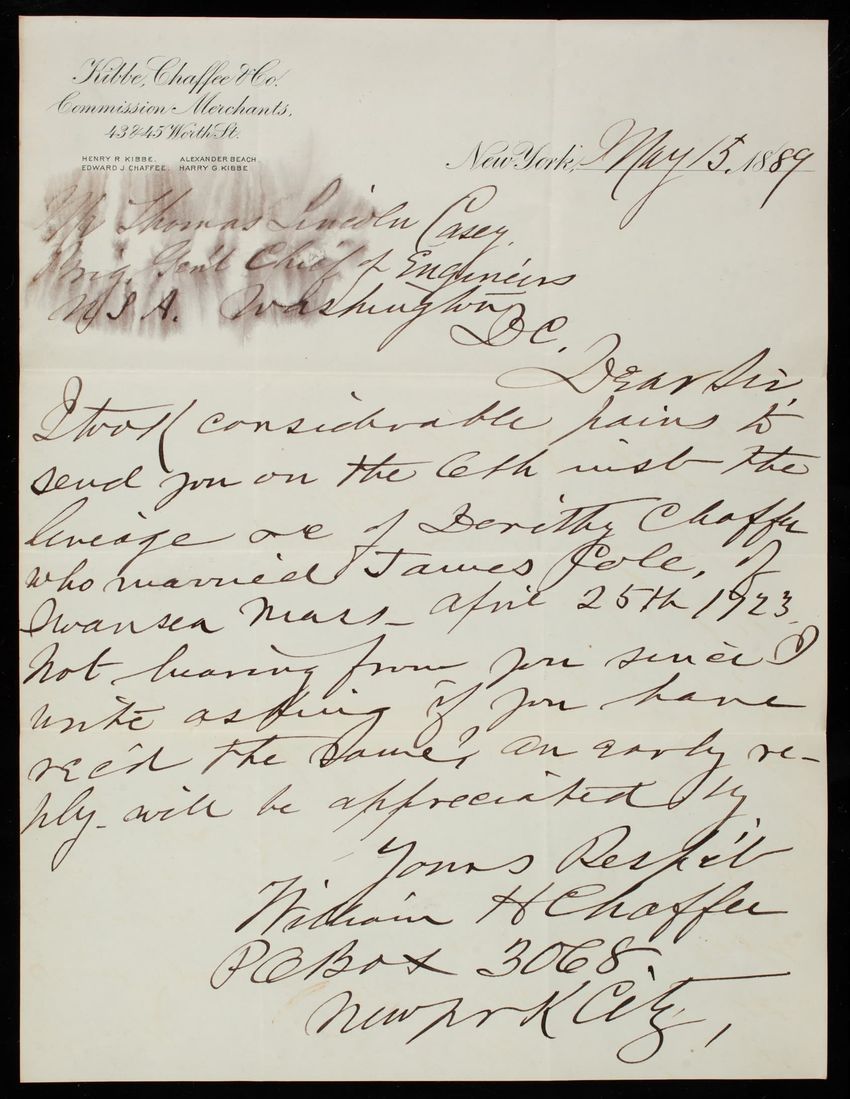 Kibbe, Chaffee & Co.
Commission Merchants,
43 & 45 Worth St.
HENRY R. KIBBE. ALEXANDER BEACH
EDWARD J. CHAFFEE. HARRY G. KIBBE
New York, May 15. 1889
Mr Thomas Lincoln Casey,
Brig. Gen'l Chief of Engineers
U S A. Washington
D C.
Dear Sir,
I took considerable pains to
send you on the 6th inst the
lineage &c of Dorithy Chaffee
who married James Cole, of
Swansea Mass - April 25th 1723.
Not hearing from you since I
write asking if you have
rec'd the same, an early re-
ply - will be appreciated by
Yours Respc't
William H Chaffee
P O Box 3068
New York City,